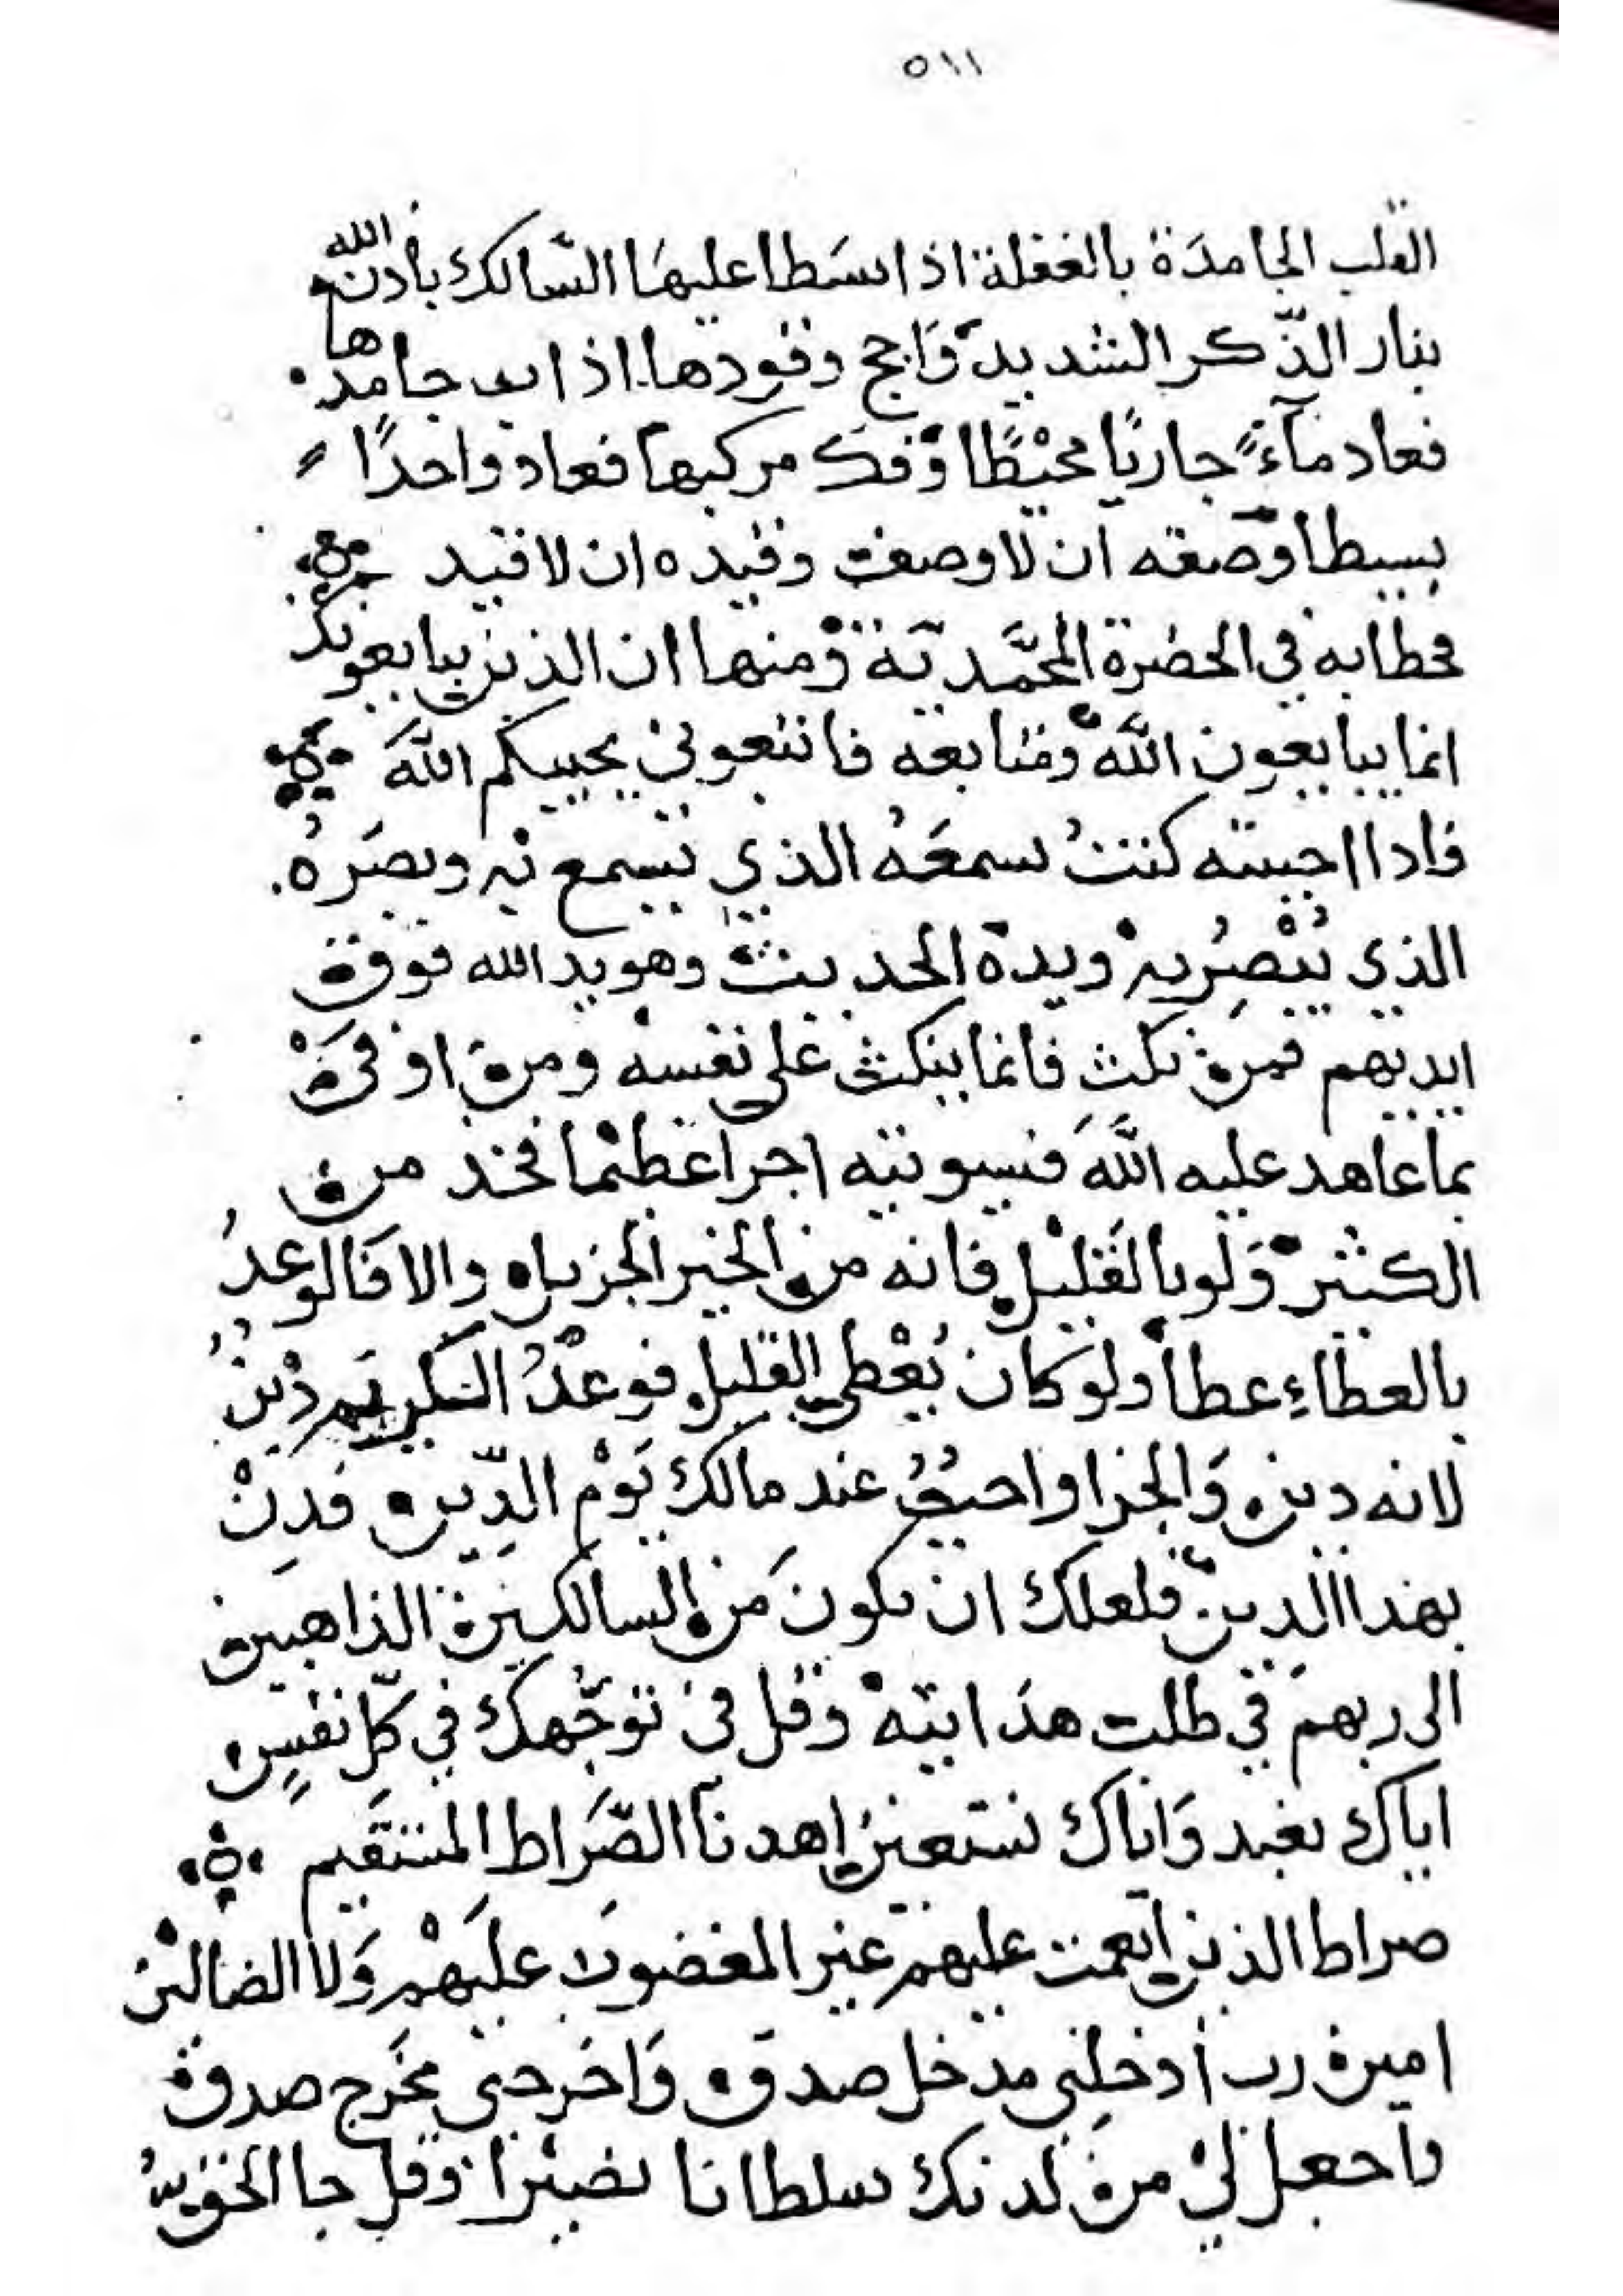 ٥١١
القلب الجامدة بالغفلة اذا سطا عليها السالك باذن الله
بنار الذّكر الشديد وَاجج وقودها اذاب جامدها
فعاد مآءً جاريًا محيْطًا وَفك مركبها فعاد واحدًا
بسيطا وصفته ان لا وصف وقيده ان لا قيد
فخطابه في الحضرة المحمَّدية وْمنها ان الذين يبايعونك
انما يبايعون اللَّه ومتابعه فاتبعوني يحببكم اللّهَ
فاذا احببته كنتُ سمعَهُ الذي يسمع به وبصَرهُ
الذي يُبْصِرُ به ويده الحديث وهو يد الله فوق
ايديهم فمن نكث فانما ينكث على نفسه ومن اوفىَ
بما عاهد عليه اللَّهَ فسيوتيه اجرا عظيْما فخذ من
الكثير وَلو بالقليل فانه من الخير الجزيل والا فَالوعدُ
بالعطاءِ عطا ولو كان يُعْطي القليل فوعدُ الكريم دْينٌ
لانه دين وَالجزا واحبُّ عند مالك يَوْم الدِّين فدِنْ
بهذا الدين فلعلك ان تكونَ مَن السالكين الذاهبين
الى ربهم في طلب هدَايته وقل في توجُّهك في كلّ نفسٍ
اياك نعبد وَاياك نستعين اهدنا الصَّراط المستقيم
صراط الذين انعمت عليهم غير المغضوب عليَهْم وَلا الضالين
امين رب أدخلِني مدخل صدق وَاخرجني مخَرج صدق
واجعل ليْ من لدنك سلطانا نصيْرا وقل جا الحق